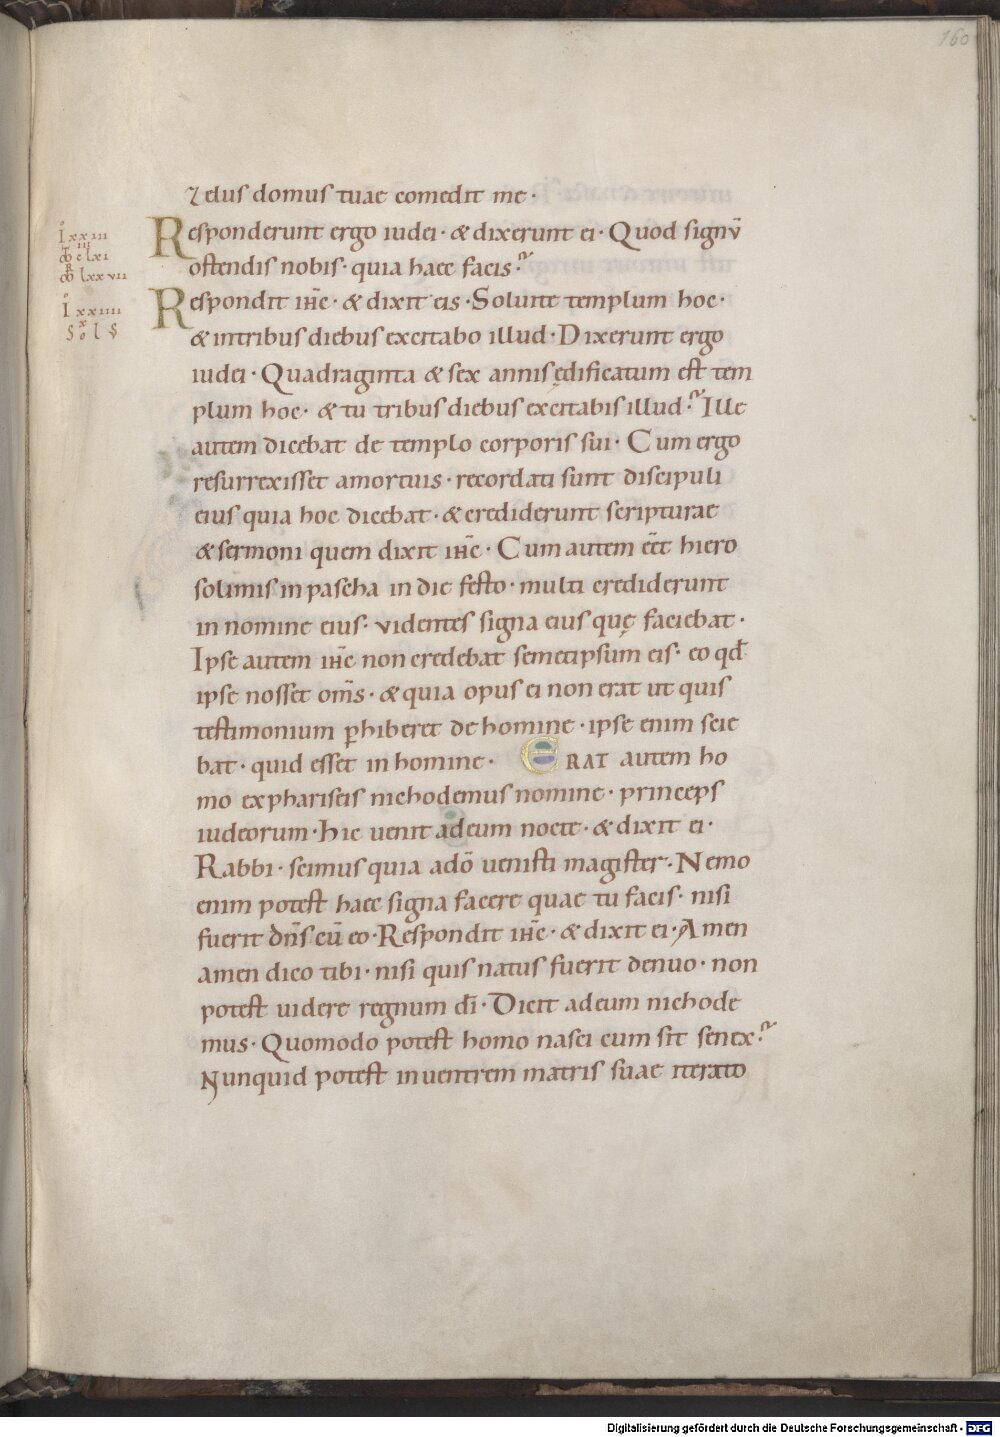 160
zelus domus tuae comedit me·
Responderunt ergo iudei· & dixerunt ei· Quod signū
ostendis nobis· quia haec facis?
Respondit ihc̄· & dixit eis· Soluite templum hoc·
& intribus diebus excitabo illud· Dixerunt ergo
iudei· Quadraginta & sex annis ędificatum est tem
plum hoc· & tu tribus diebus excitabis illud? Ille
autem dicebat de templo corporis sui· Cum ergo
resurrexisset amortuis· recordati sunt discipuli
eius quia hoc dicebat· & crediderunt scripturae
& sermoni quem dixit ihc̄· Cum autem eēt hiero
solimis inpascha in die festo· multi crediderunt
in nomine eius· videntes signa eius quę faciebat·
Ipse autem ihc̄ non credebat semetipsum eis· eo qđ
ipse nosset om̄s· & quia opus ei non erat ut quis
testimonium ꝑhiberet de homine· ipse enim scie
bat· quid esset in homine· ERAT autem ho
mo exphariseis nichodemus nomine· princeps
iudeorum· Hic uenit adeum nocte· & dixit ei·
Rabbi· scimus quia adō uenisti magister· Nemo
enim potest haec signa facere quae tu facis· nisi
fuerit dn̄s cū eo· Respondit ihc̄· & dixit ei· Amen
amen dico tibi· nisi quis natus fuerit denuo· non
potest uidere regnum dī· Dicit adeum nichode
mus· Quomodo potest homo nasci cum sit senex?
Nunquid potest inuentrem matris suae iterato
Digitalisierung gefördert durch die Deutsche Forschungsgemeinschaft - DFG